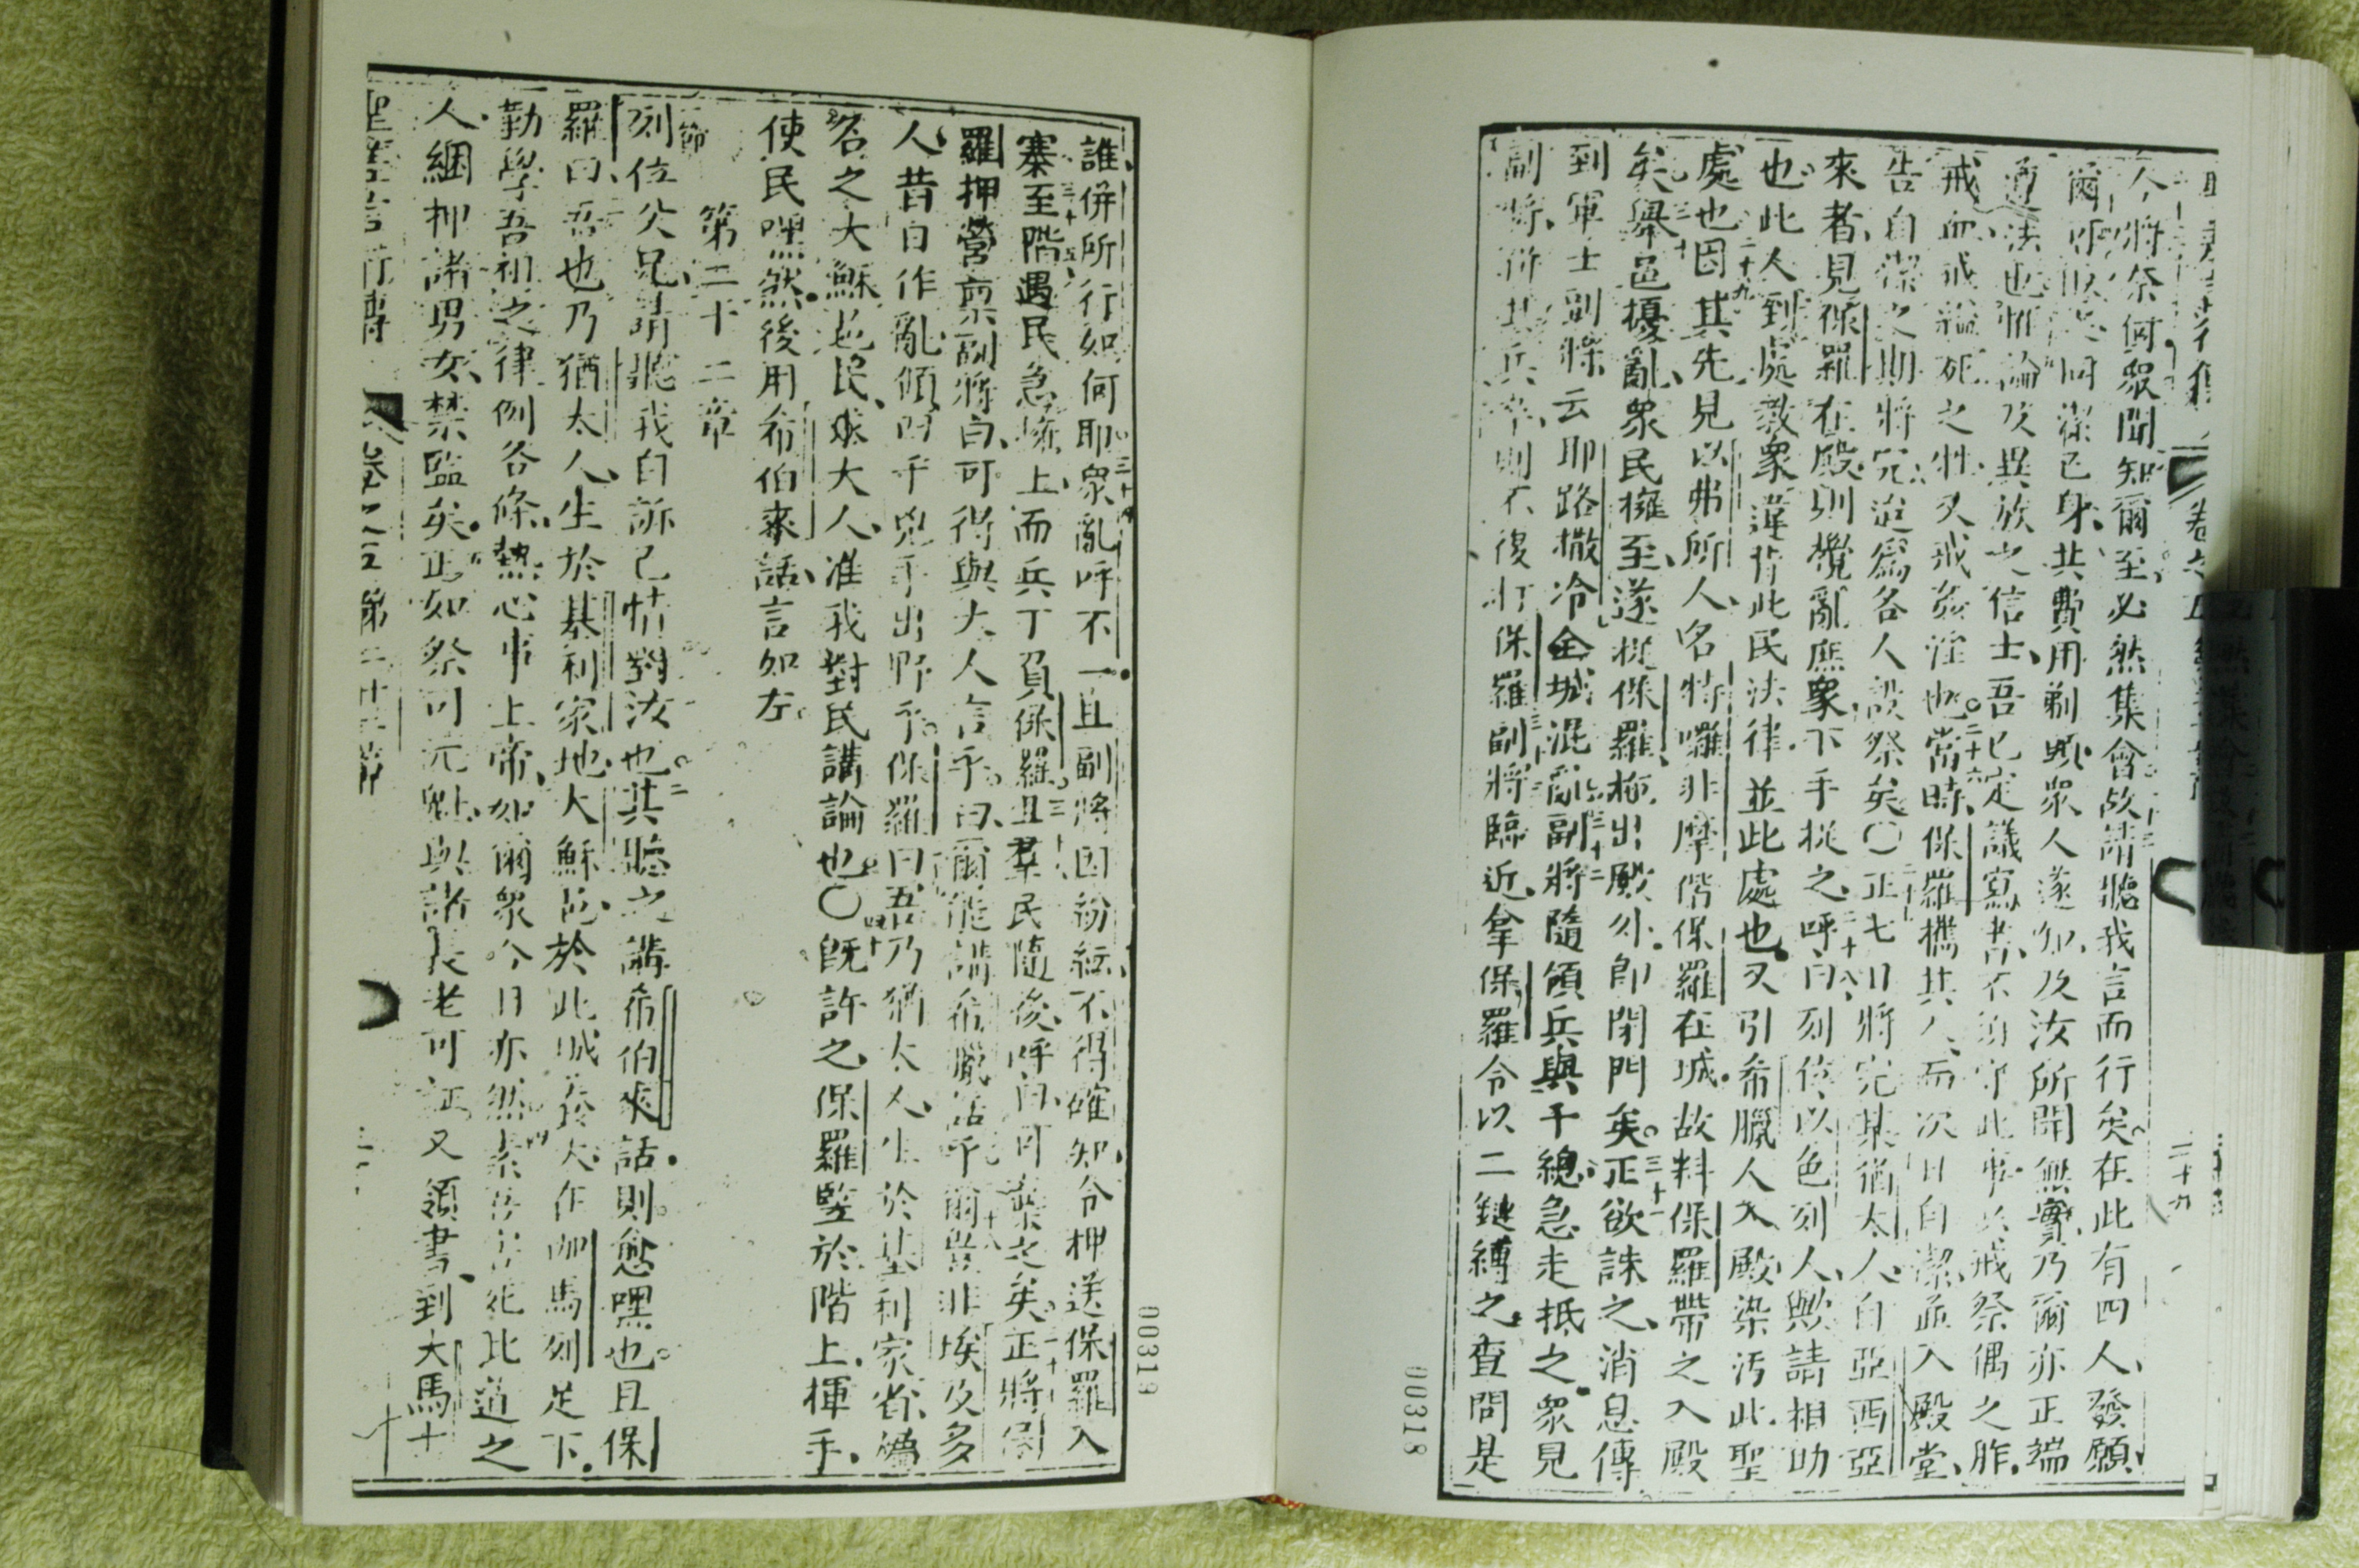 人將奈何眾聞知爾至必然集會故請聽我言而行矣在此有四人發願
爾可取之同潔己身共費用剃頭眾人遂知及汝所聞無實乃爾亦正端
遵法也惟論及異族之信士吾已定議寫書不須守此事只戒祭偶之胙
戒血戒縊死之牲又戒姦淫也二十六當時保羅攜其人而次日自潔並入殿堂
告自潔之期將完迨為各人設祭矣〇正七日將完某猶太人自亞西亞
來者見保羅在殿則攪亂庶眾下手捉之二十八呼曰列位以色列人歟請相助
也此人到處教眾違背此民法律並此處也又引希臘人入殿染污此聖
處也二十九因其先見以弗所人名特囉非摩偕保羅在城故料保羅帶之入殿
矣三十舉邑擾亂眾民擁至遂捉保羅拖出殿外即閉門矣三十一正欲誅之消息傳
到軍士副將云耶路撒冷全城混亂三十二副將隨領兵與千總急走抵之眾見
副將併其兵卒則不復打保羅三十三副將臨近拿保羅令以二鏈縛之查問是
00318
誰併所行如何耶三十四眾亂呼不一且副將因紛紜不得確知令押送保羅入
寨三十五至階遇民急擁上而兵丁負保羅三十六且羣民隨後呼曰可棄之矣三十七正將保
羅押營稟副將白可得與大人言乎曰爾能講希臘話乎三十八爾豈非埃及多
人昔日作亂領四千兇手出野乎保羅曰吾乃猶太人生於基利家省
名之大穌邑民求大人准我對民講論也〇四十既許之保羅豎於階上揮手
使民嘿然後用希伯來話言如左
第二十二章
節
列位父兄請聽我白訴己情對汝也二其聽之講希伯來話則愈嘿也且保
羅曰吾也乃猶太人生於基利家地大穌邑於此城養大在迦馬列足下
勤學吾祖之律例各條熱心事上帝如爾眾今日亦然四素吾害死此道之
人綑押諸男女禁監矣正如祭司元魁與諸長老可証又領書到大馬士
聖差言行傳 卷之五 第二十二章
00319